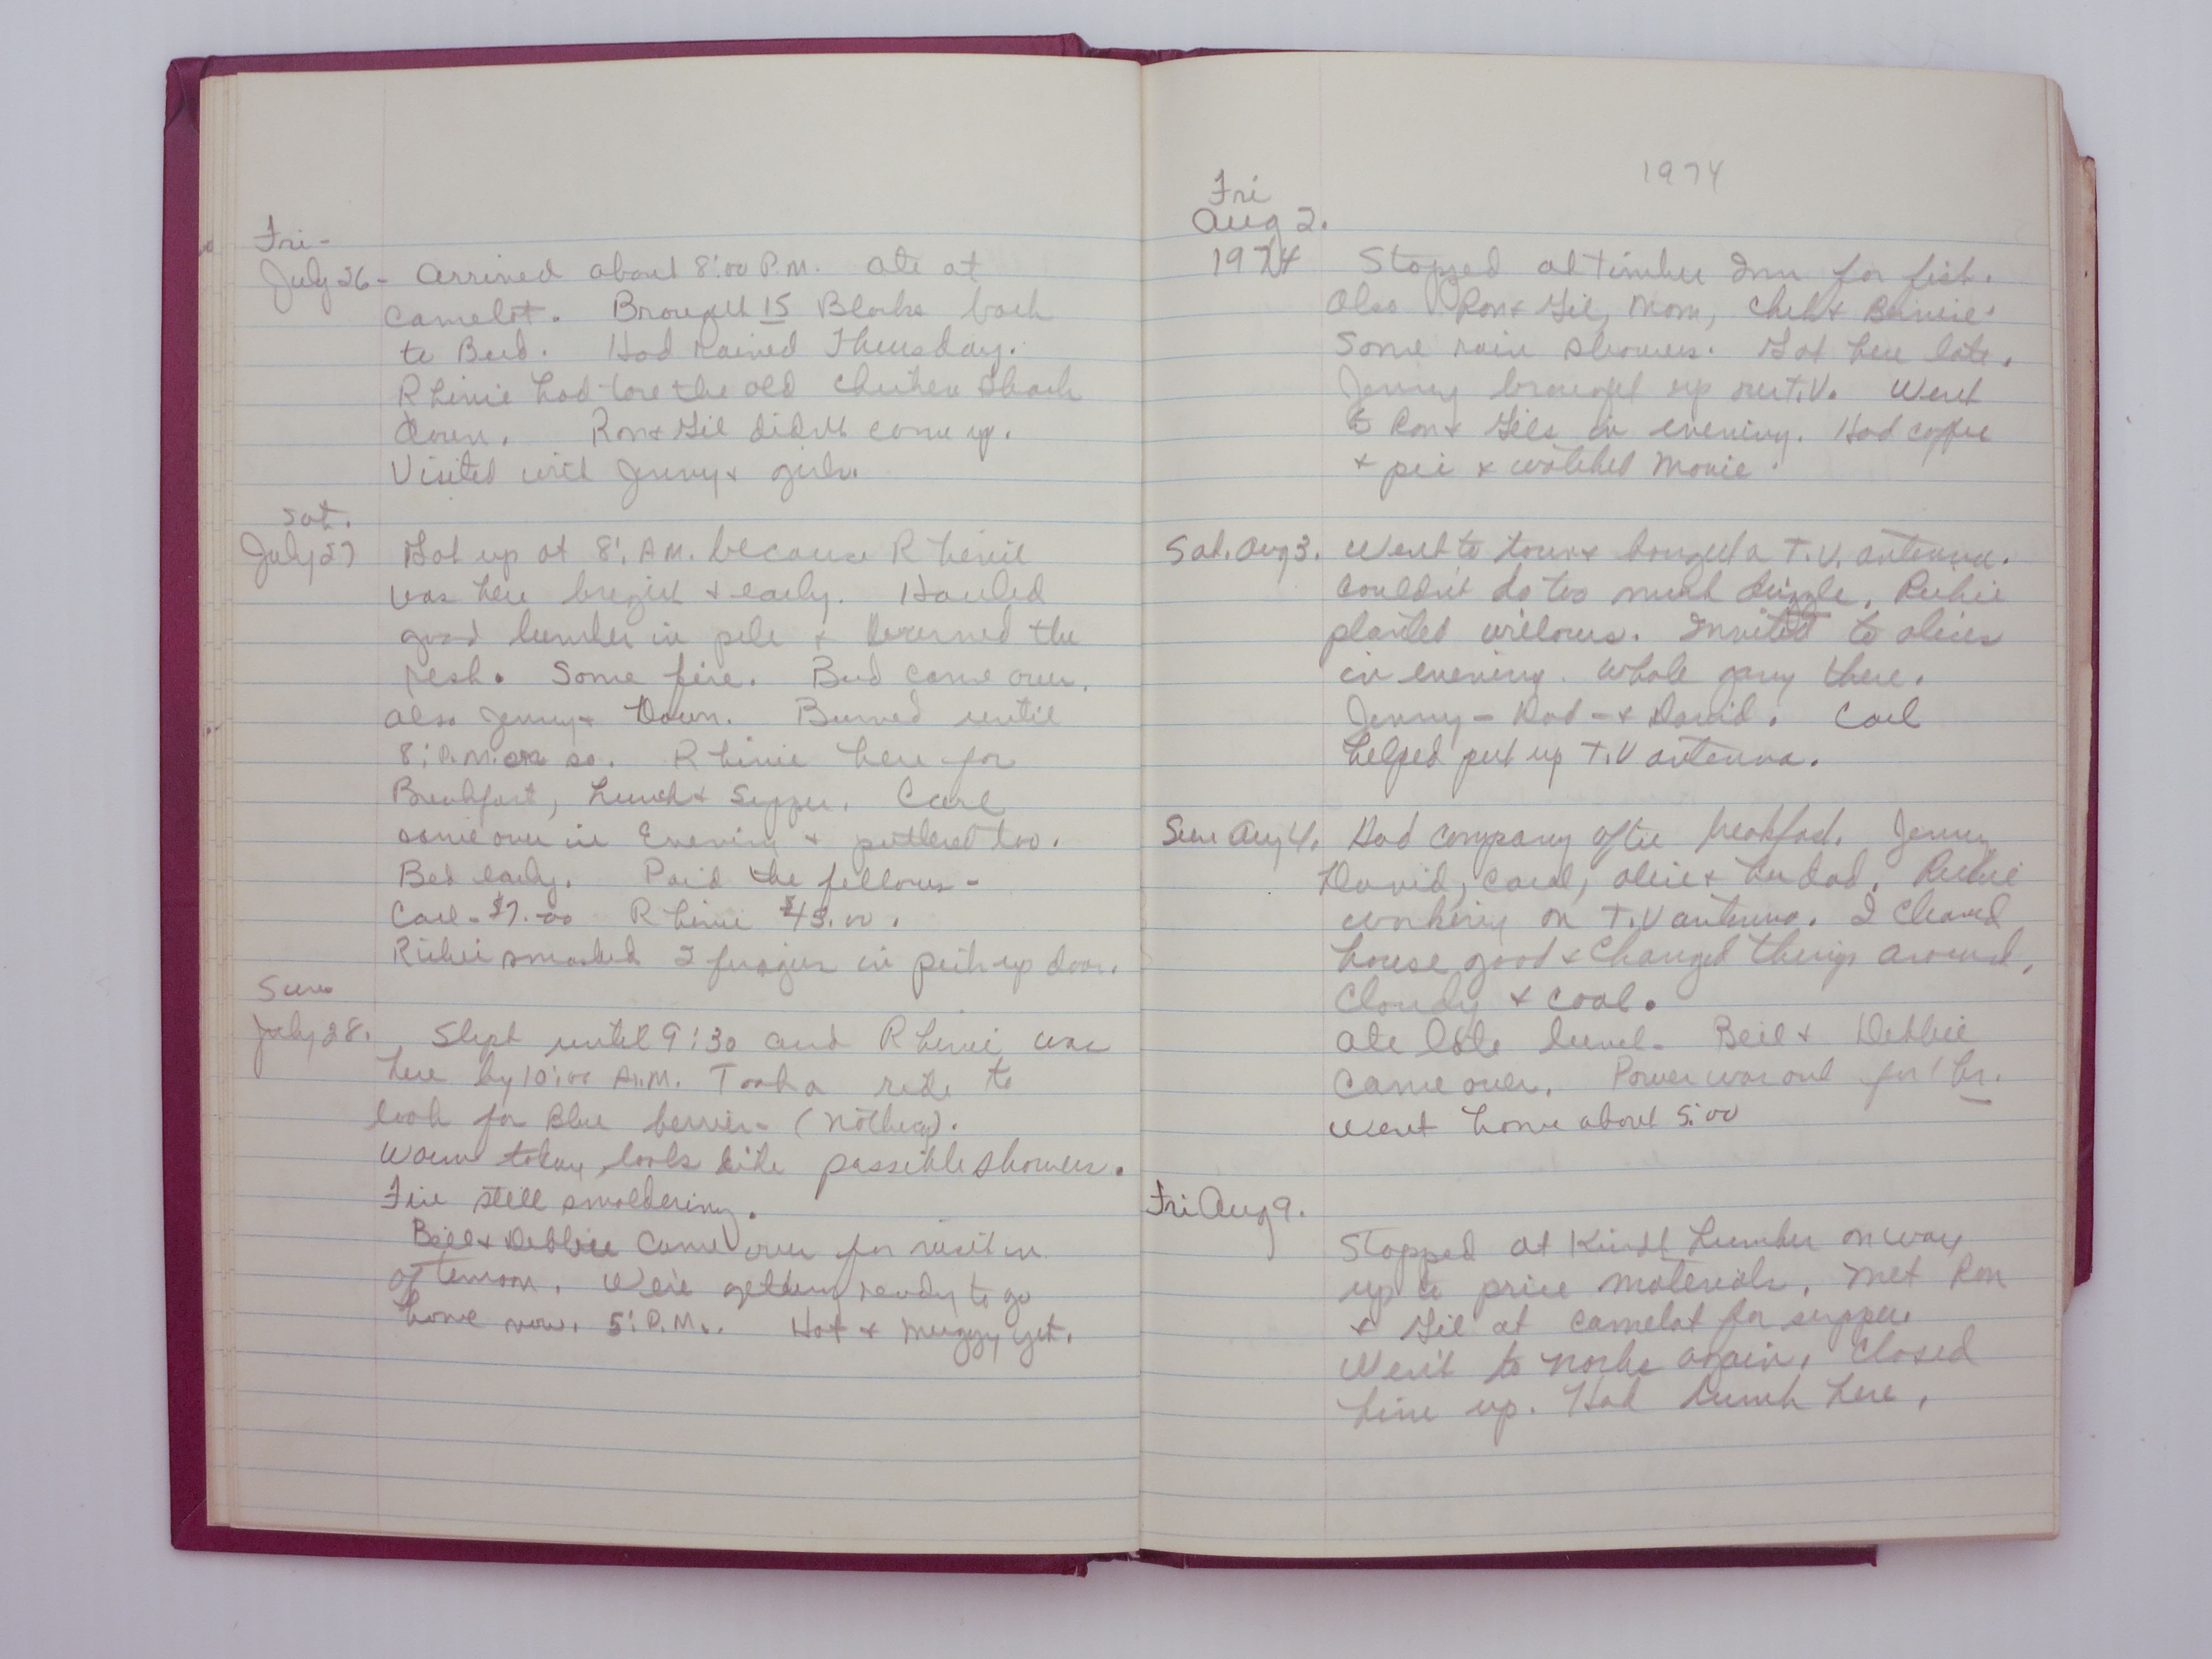 Fri-
July 26- Arrived about 8:00 P.M. Ate at
Camelot. Brought 15 Blocks back
to Bud. Had rained Thursday.
Rhinie had tore the old chicken shack
down. Ron & Gil didn't come up.
Visited with Jenny & girls.
Sat.
July 27 Got up at 8: A.M. because Rhinie
was here bright & early. Hauled
good lumber in pile & burned the
rest. Some fire. Bud came over.
Also Jenny & Dawn. Burned until
8: P.M. or so. Rhinie here for
Breakfast, Lunch & Supper. Carl
came over in Evening & puttered too.
Bed early. Paid the fellows-
Carl- $7.00 Rhinie $45.00.
Richie smashed 2 fingers in pick-up door.
Sun.
July 28. Slept until 9:30 and Rhinie was
here by 10:00 A.M. Took a ride to
look for Blue berries- (nothing).
Warm today, looks like possible showers.
Fire still smoldering.
Bill & Debbie came over for visit in
afternoon. We're getting ready to go
home now. 5: P.M.. Hot & muggy yet.
1974
Fri
Aug 2.
1974 Stopped at Timber Inn for fish.
Also Ron & Gil, Mom, Chet & Bernie.
Some rain showers. Got here late.
Jenny brought up our T.V. Went
to Ron & Gils in evening. Had coffee
& pie & watched movie.
Sat. Aug 3. Went to town & bought a T.V. antenna.
Couldn't do too much drizzle. Richie
planted willows. Invited to Alices
in evening. Whole gang there.
Jenny - Dad - & David. Carl
helped put up T.V antenna.
Sun Aug 4. Had company after breakfast. Jenny,
David, Carl, Alice & her dad. Richie
working on T.V antenna. I cleaned
house good & changed things around.
Cloudy & cool.
Ate late lunch- Bill & Debbie
came over. Power was out for 1 hr.
Went home about 5:00
Fri Aug 9.
Stopped at Lumber on way
up to price materials. Met Ron
& Gil at Camelot for supper
Went to again. Closed
up. Had lunch here.